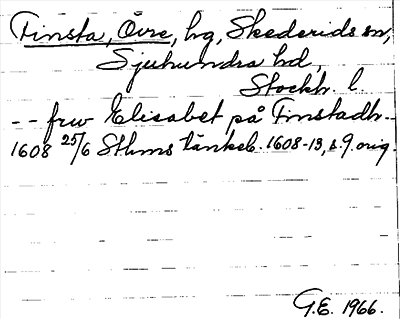 Finsta, Övre, hg, Skederids sn,
Sjuhundra hd,
Stockh. l.
-- frw Elisabet på Finstadh --
1608 25/6 Sthms tänkeb. 1608-13, s. 9. orig.
G.E. 1966.